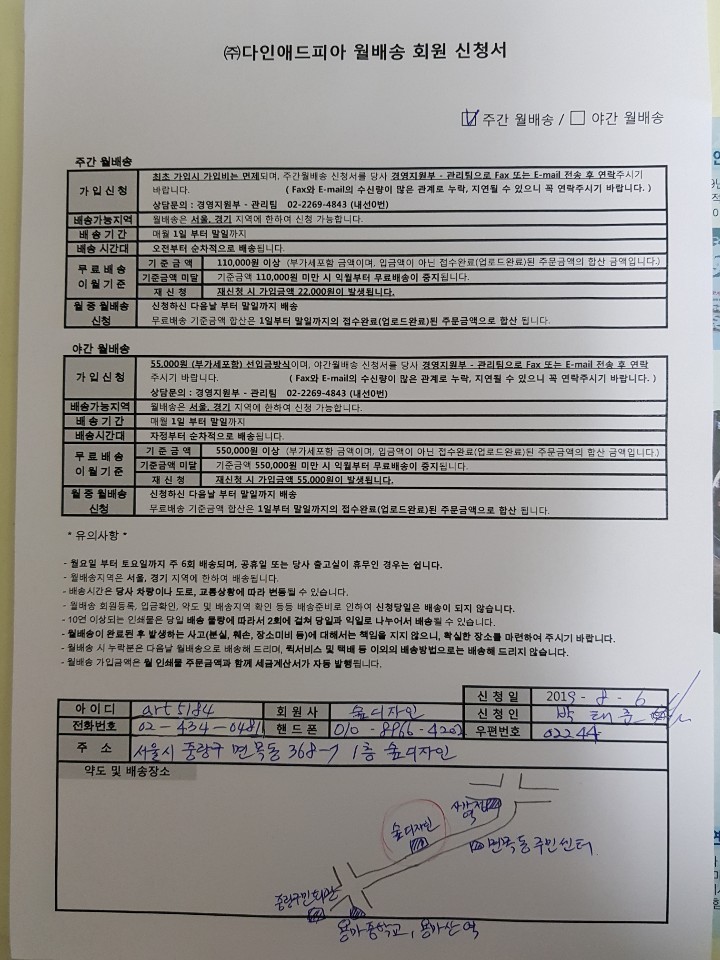 ㈜다인애드피아 월배송 회원 신청서
☑ 주간 월배송 / ☐ 야간 월배송
주간 월배송
가 입 신 청
최초 가입시 가입비는 면제되며, 주간월배송 신청서를 당사 경영지원부 - 관리팀으로 Fax 또는 E-mail 전송 후 연락주시기
바랍니다. ( Fax와 E-mail의 수신량이 많은 관계로 누락, 지연될 수 있으니 꼭 연락주시기 바랍니다. )
상담문의 : 경영지원부 - 관리팀 02-2269-4843 (내선0번)
배송가능지역 월배송은 서울, 경기 지역에 한하여 신청 가능합니다.
배 송 기 간 매월 1일 부터 말일까지
배송 시간대 오전부터 순차적으로 배송됩니다.
무 료 배 송 이 월 기 준
기 준 금 액 110,000원 이상 (부가세포함 금액이며, 입금액이 아닌 접수완료(업로드완료)된 주문금액의 합산 금액입니다.)
기준금액 미달 기준금액 110,000원 미만 시 익월부터 무료배송이 중지됩니다.
재 신 청 재신청 시 가입금액 22,000원이 발생됩니다.
월 중 월배송 신청
신청하신 다음날 부터 말일까지 배송
무료배송 기준금액 합산은 1일부터 말일까지의 접수완료(업로드완료)된 주문금액으로 합산 됩니다.
야간 월배송
가 입 신 청
55,000원 (부가세포함) 선입금방식이며, 야간월배송 신청서를 당사 경영지원부 - 관리팀으로 Fax 또는 E-mail 전송 후 연락
주시기 바랍니다. ( Fax와 E-mail의 수신량이 많은 관계로 누락, 지연될 수 있으니 꼭 연락주시기 바랍니다. )
상담문의 : 경영지원부 - 관리팀 02-2269-4843 (내선0번)
배송가능지역 월배송은 서울, 경기 지역에 한하여 신청 가능합니다.
배 송 기 간 매월 1일 부터 말일까지
배송시간대 자정부터 순차적으로 배송됩니다.
무 료 배 송 이 월 기 준
기 준 금 액 550,000원 이상 (부가세포함 금액이며, 입금액이 아닌 접수완료(업로드완료)된 주문금액의 합산 금액입니다.)
기준금액 미달 기준금액 550,000원 미만 시 익월부터 무료배송이 중지됩니다.
재 신 청 재신청 시 가입금액 55,000원이 발생됩니다.
월 중 월배송 신청
신청하신 다음날 부터 말일까지 배송
무료배송 기준금액 합산은 1일부터 말일까지의 접수완료(업로드완료)된 주문금액으로 합산 됩니다.
* 유의사항 *
- 월요일 부터 토요일까지 주 6회 배송되며, 공휴일 또는 당사 출고실이 휴무인 경우는 쉽니다.
- 월배송지역은 서울, 경기 지역에 한하여 배송됩니다.
- 배송시간은 당사 차량이나 도로, 교통상황에 따라 변동될 수 있습니다.
- 월배송 회원등록, 입금확인, 약도 및 배송지역 확인 등등 배송준비로 인하여 신청당일은 배송이 되지 않습니다.
- 10연 이상되는 인쇄물은 당일 배송 물량에 따라서 2회에 걸쳐 당일과 익일로 나누어서 배송될 수 있습니다.
- 월배송이 완료된 후 발생하는 사고(분실, 훼손, 장소미비 등)에 대해서는 책임을 지지 않으니, 확실한 장소를 마련하여 주시기 바랍니다.
- 월배송 시 누락분은 다음날 월배송으로 배송해 드리며, 퀵서비스 및 택배 등 이외의 배송방법으로는 배송해 드리지 않습니다.
- 월배송 가입금액은 월 인쇄물 주문금액과 함께 세금계산서가 자동 발행됩니다.
신 청 일 2019 - 8 - 6
아 이 디 art5184 회 원 사 숲디자인 신 청 인 박 태준
전화번호 02 - 434 - 0481 핸 드 폰 010 - 8966 - 4202 우편번호 02244
주 소 서울시 중랑구 면목동 368-7 1층 숲디자인
약도 및 배송장소
숲디자인
면목동주민센터
중랑구민회관
용마중학교, 용마산역